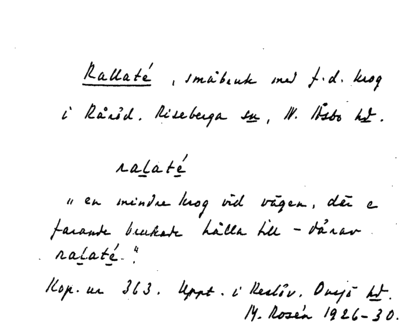 Rallaté, småbruk med f.d. krog
i Råröd. Riseberga sn, N. Åsbo hd.
ralaté
"en mindre krog vid vägen, där e
farande brukade hålla till - därav
ralaté."
Kop. nr 363. Uppt. i Reslöv. Onsjö hd.
M. Rosén 1926-30.